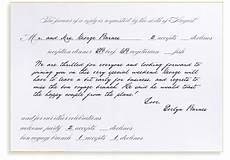 The favour of a reply is requested by the sixth of August
Mr. and Mrs. George Barnes 2 accepts declines
reception dinner vegetarian fish
We are thrilled for everyone and looking forward to
joining you on this very special weekend. George will
have to leave a bit early for business, and regrets to miss
the Sunday brunch. He said he will be sure to toast
the happy couple from the plane!
Love,
Evelyn Barnes
and for our other celebrations
welcome party 2 accepts declines
accepts declines